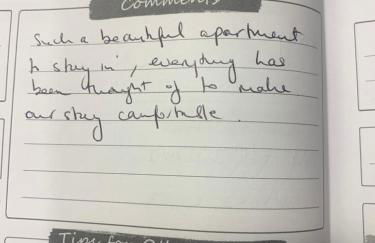 Comments
Such a beautiful apartment
to stay in, everything has
been thought of to make
our stay comfortable.
Tips for